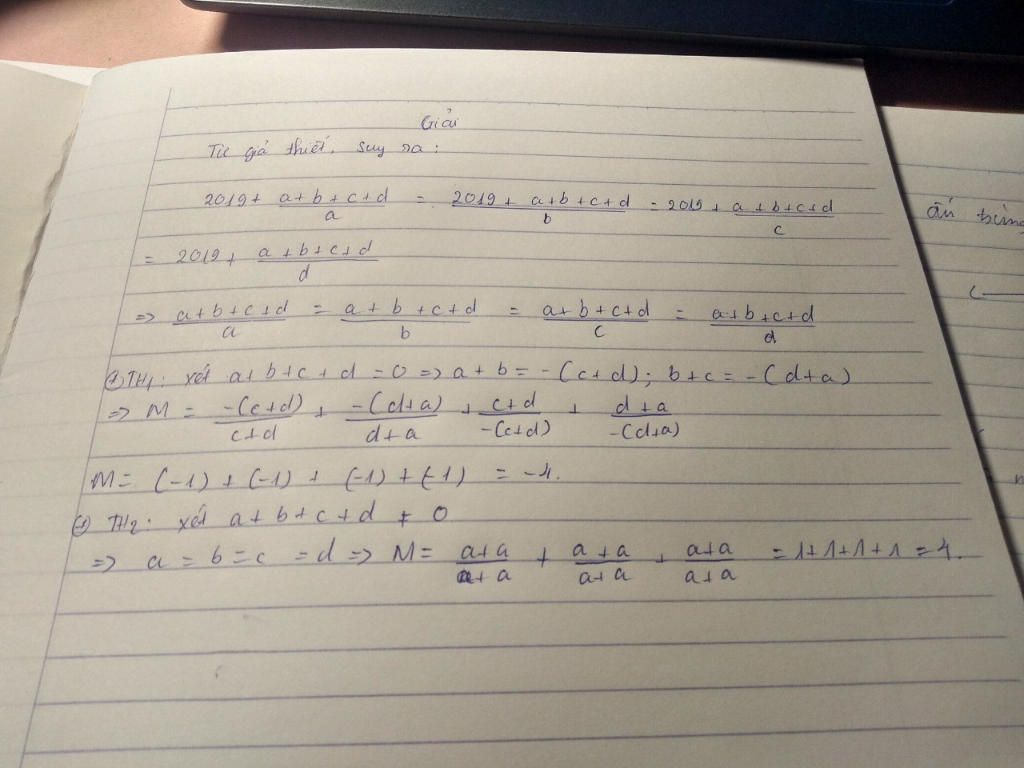 Giải
Từ giả thiết, suy ra:
2019 + (a+b+c+d)/a = 2019 + (a+b+c+d)/b = 2019 + (a+b+c+d)/c
= 2019 + (a+b+c+d)/d
=> (a+b+c+d)/a = (a+b+c+d)/b = (a+b+c+d)/c = (a+b+c+d)/d
+) TH1: xét a+b+c+d = 0 => a+b = -(c+d); b+c = -(d+a)
=> M = -(c+d)/(c+d) + -(d+a)/(d+a) + (c+d)/-(c+d) + (d+a)/-(d+a)
M = (-1) + (-1) + (-1) + (-1) = -4.
+) TH2: xét a+b+c+d ≠ 0
=> a = b = c = d => M = (a+a)/(a+a) + (a+a)/(a+a) + (a+a)/(a+a) = 1+1+1+1 = 4.